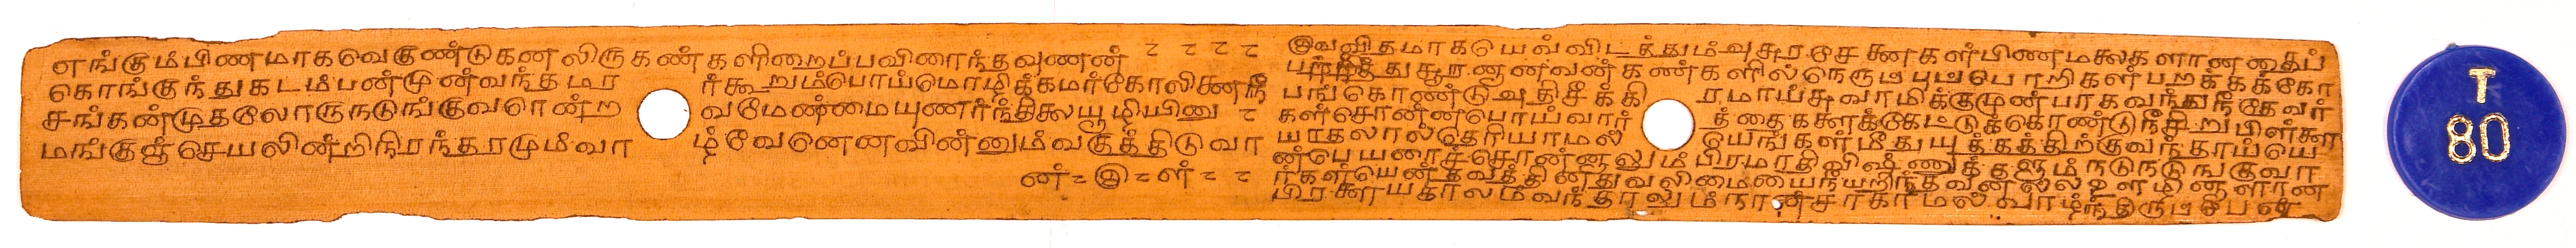 எங்கும்பிணமாகவெகுண்டுகனலிருகண்களிறைப்பவிரைந்தவுணன்
கொங்குந்துகடம்பன்முன்வந்தமர ர்கூறும்பொய்மொழிக்கமர்கோலினைநீ
சங்கன்முதலோருநடுங்குவரொன்ற வமேண்மையுணர்ந்திலையூழியினு
மங்குஞ்செயலின்றிநிரந்தரமுமீவா ழ்வேனெனவின்னும்வகுத்திடுவா
ன்
இவவிதமாகயெவ்விடத்தும்அசுரசேனைகள்பிணமலைகளானதைப்
பார்த்துசூரனானவன்கண்களில்நெருப்புப்பொறிகள்பறக்கக்கோ
பங்கொண்டுஅதிசீக்கி ரமாய்சுவாமிக்குமுன்பாகவந்துநீதேவர்
கள்சொன்னபொய்வார் த்தைகளைக்கேட்டுக்கொண்டுநீசிறுபிள்ளை
யாகலால்தெரியாமல் யேங்கள்மீதுயுத்தத்திற்குவந்தாய்யெ
ன்பெயரைச்சொன்னாலும்பிரமாதிவிஷ்ணுக்களும்நடுநடுங்குவா
ர்கள்யென்தவத்தின்துவலிமையைநீயறிந்தவனல்லஉளழியினாளான
பிரளையகாலம்வந்தாலும்நான்சாகாமல்வாழ்ந்திருப்பேன்
T
80